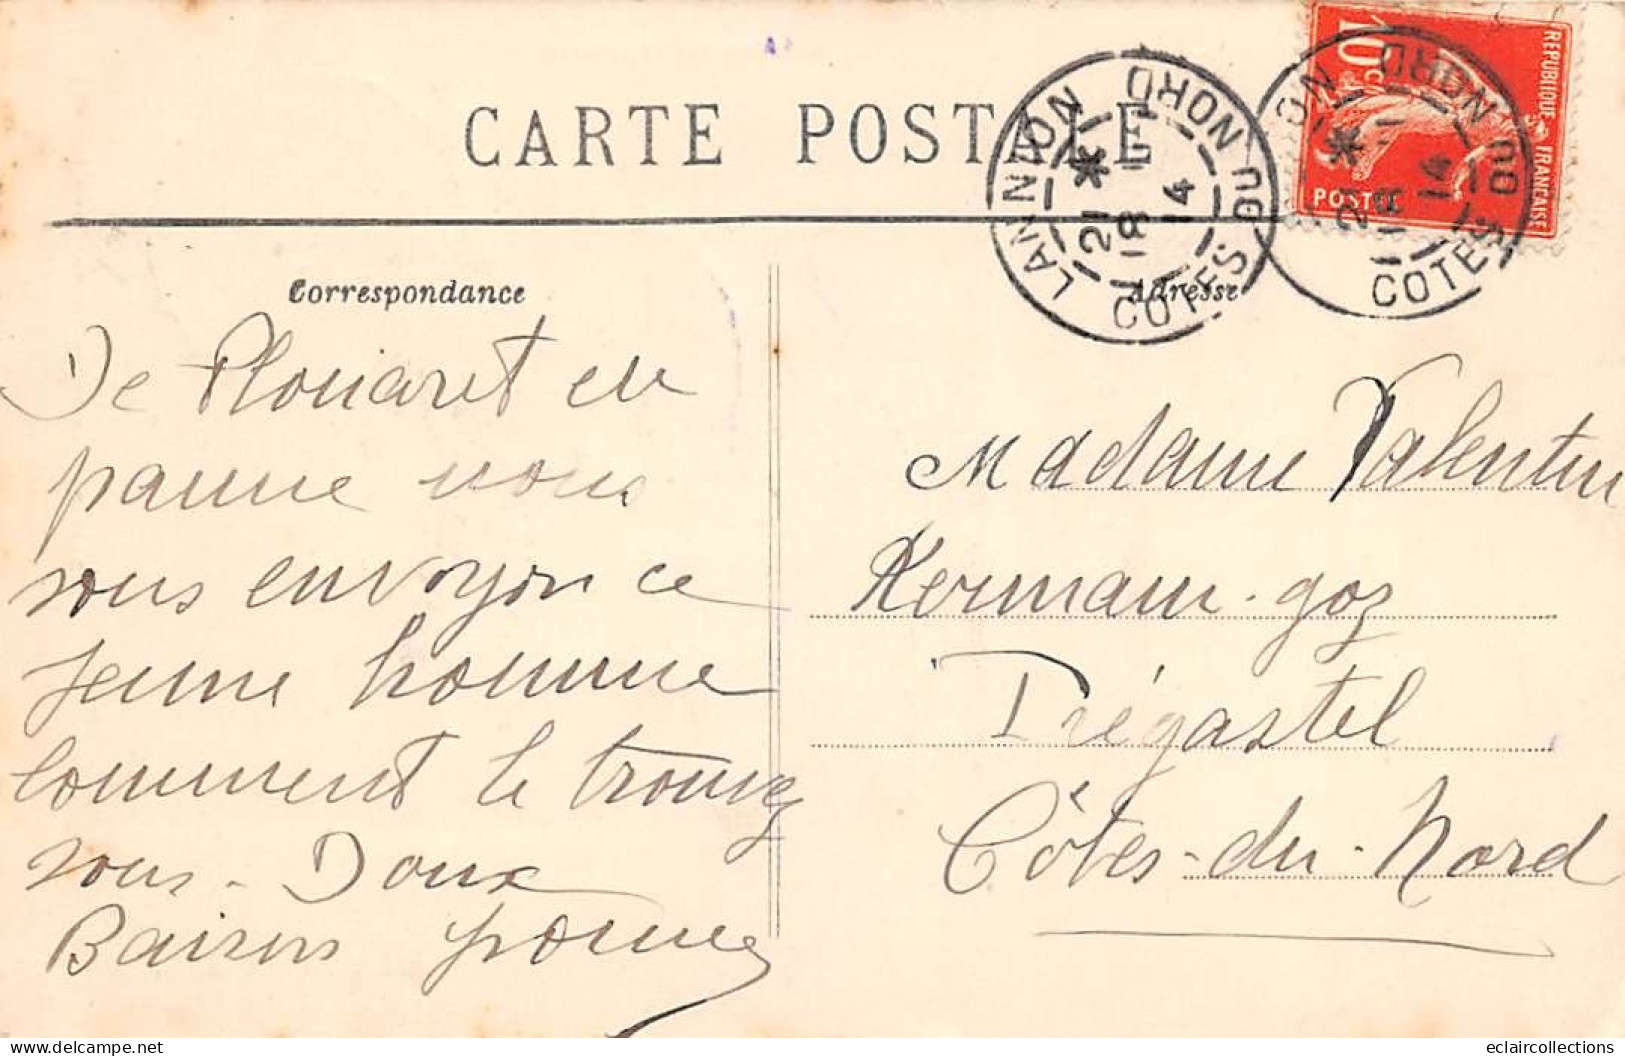 CARTE POSTALE
LANNION
COTES DU NORD
21 * 18 14
COTES DU NORD
REPUBLIQUE FRANÇAISE
10c
POSTES
Correspondance
Adresse
De Plouaret en
panne nous
vous envoyon ce
jeune homme
Comment le trouvez
vous - Doux
Baisers
Madame Valentin
Kermain-goz
Trégastel
Côtes-du-Nord
delcampe.net
eclaircollections